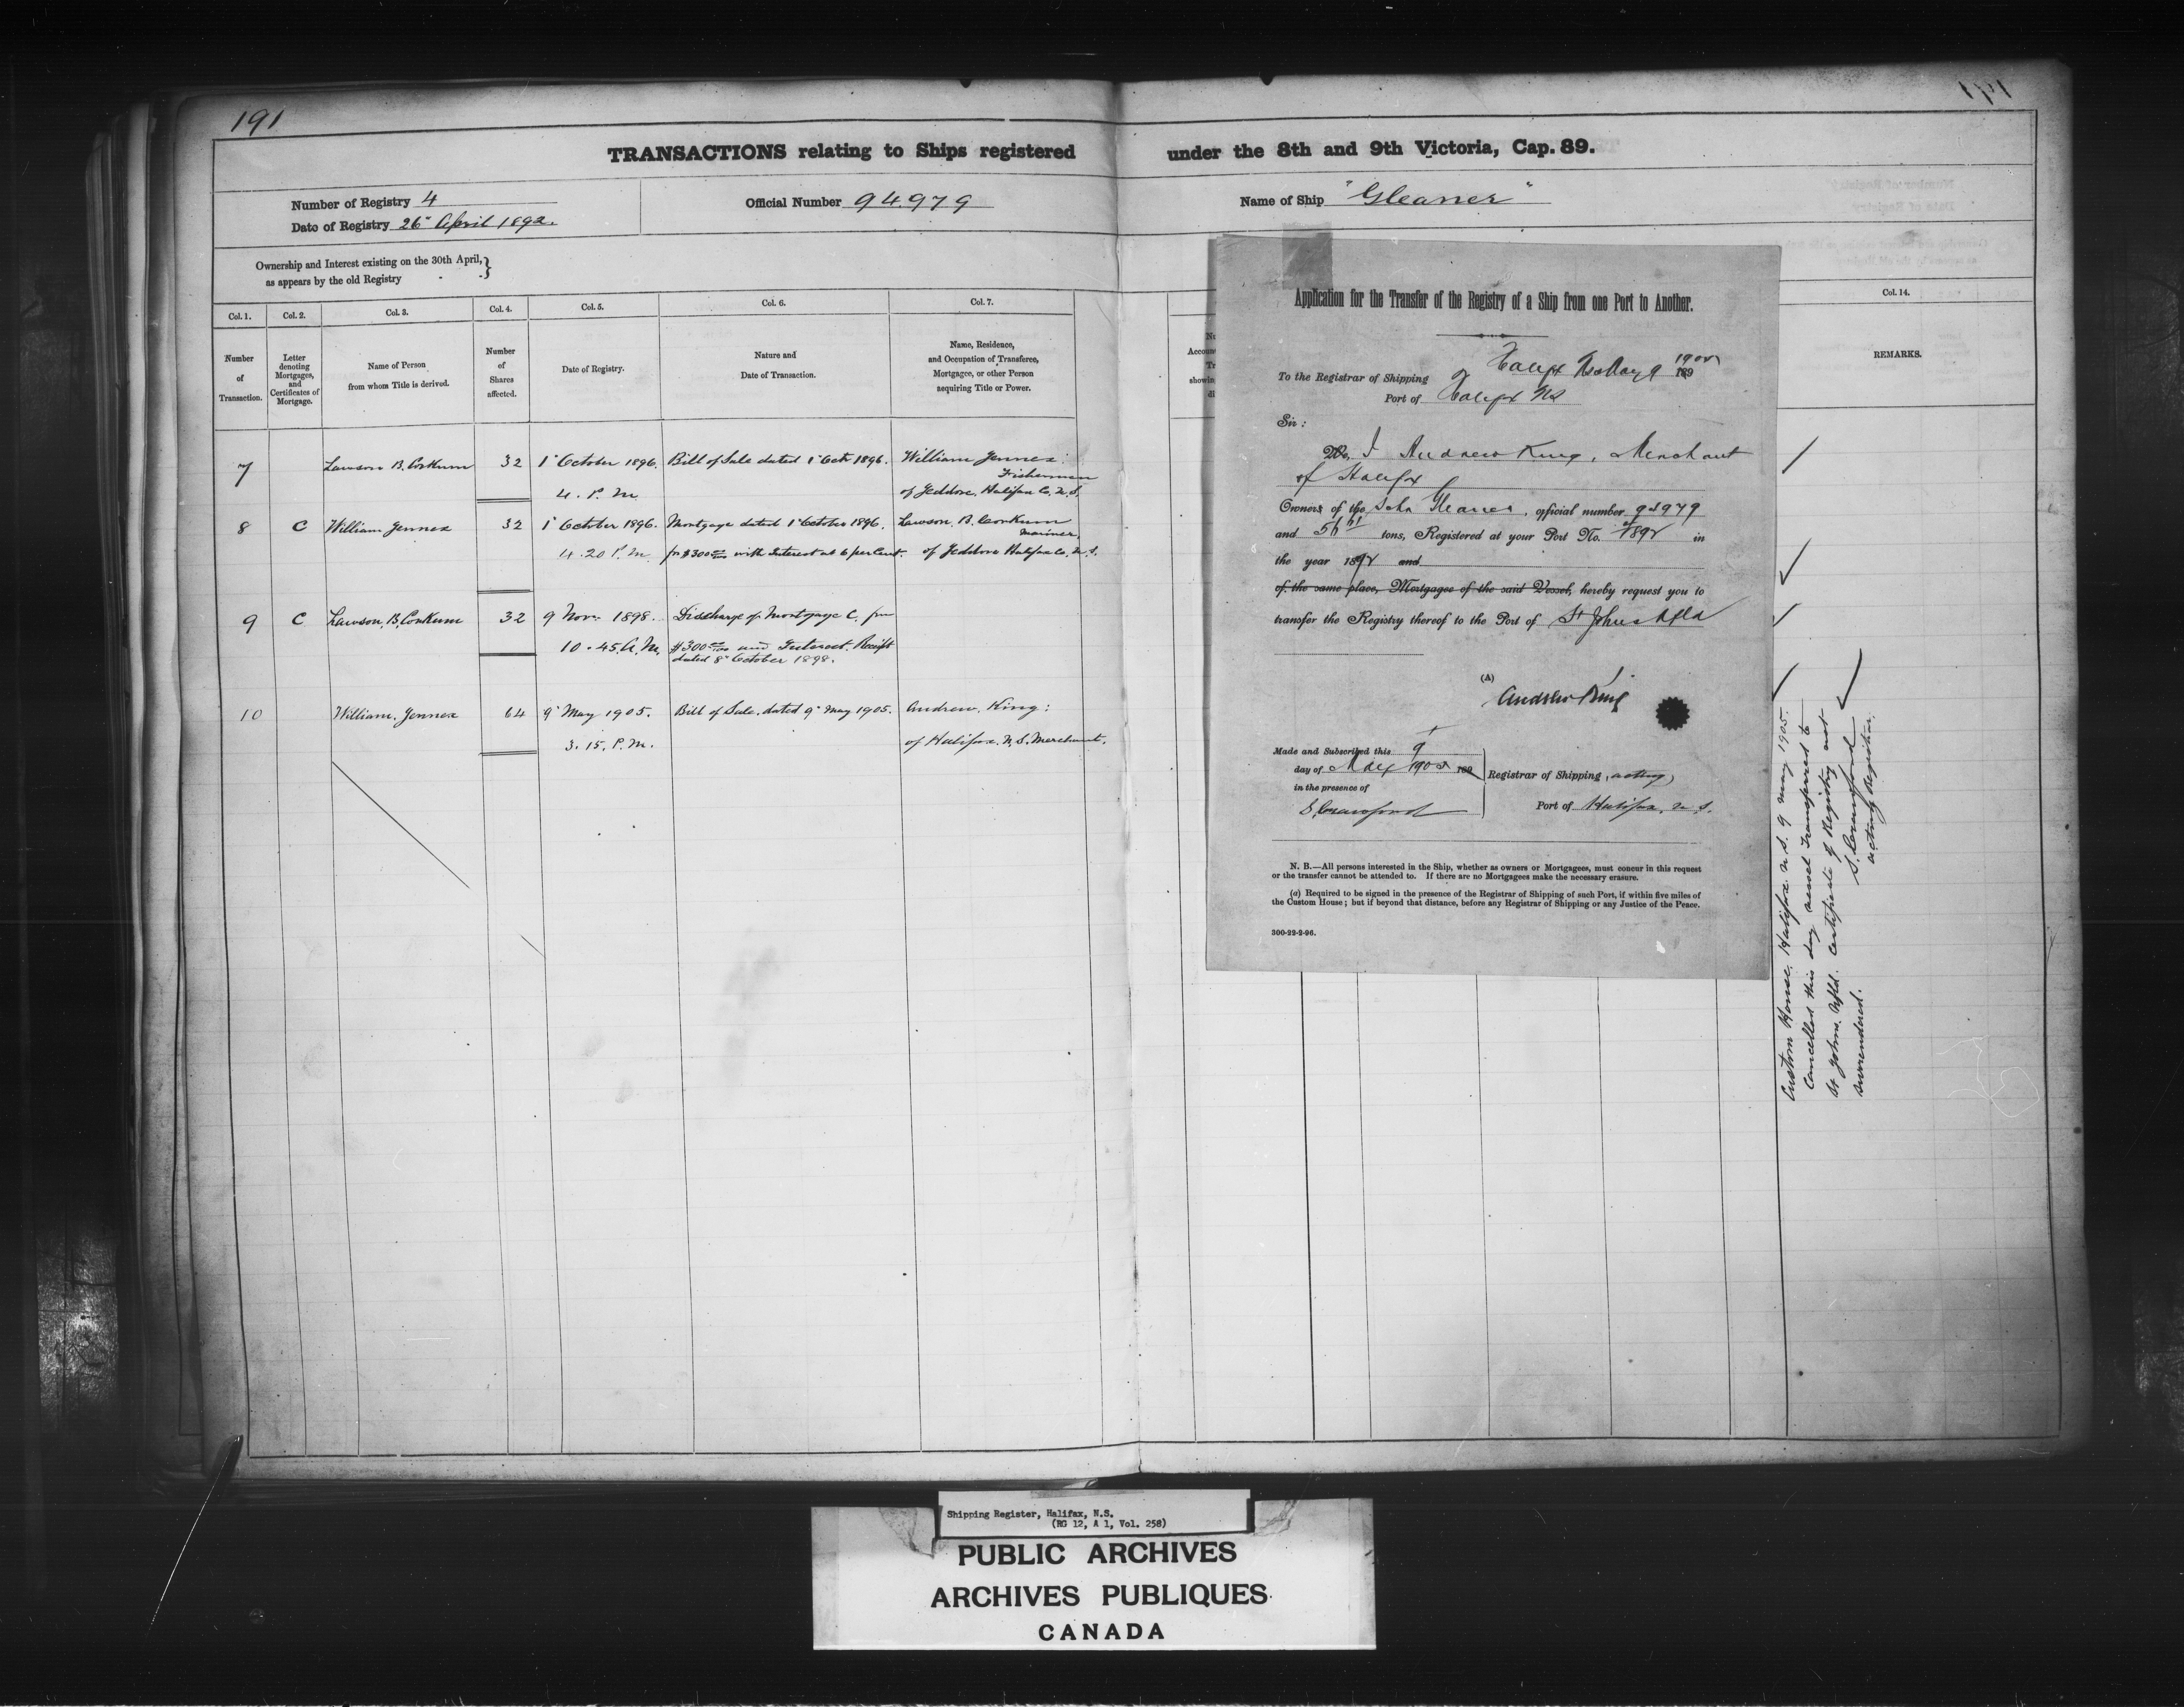 191
191
TRANSACTIONS relating to Ships registered under the 8th and 9th Victoria, Cap. 89.
Number of Registry 4
Date of Registry 26" April 1892.
Official Number 94.979
Name of Ship "Gleaner"
Ownership and Interest existing on the 30th April,}
as appears by the old Registry
Col. 1. Col. 2. Col. 3. Col. 4. Col. 5. Col. 6. Col. 7. Col. 14.
Number of Transaction.
Letter denoting Mortgages, and Certificates of Mortgage.
Name of Person from whom Title is derived.
Number of Shares affected.
Date of Registry.
Nature and Date of Transaction.
Name, Residence, and Occupation of Transferee, Mortgagee, or other Person aequiring Title or Power.
REMARKS.
7 Lawson B. Conkum 32 1" October 1896. Bill of Sale dated 1" Oct 1896. William Jennex:
Fisherman
4. P. M. of Jeddore. Halifax Co. N. S.
8 C William Jennex 32 1" October 1896. Mortgage dated 1" October 1896. Lawson. B. Conkum
Mariner.
4.20 P. M. for $300 with Interest at 6 per Cent. of Jeddore Halifax Co. N. S.
9 C Lawson. B. Conkum 32 9 Nov. 1898. Discharge of Mortgage C. for
10.45. A. M. $300 and Interest. Receipt
dated 8" October 1898.
10 William. Jennex 64 9" May 1905. Bill of Sale. dated 9" May 1905. Andrew. King:
3.15. P. M. of Halifax. N. S. Merchant.
Application for the Transfer of the Registry of a Ship from one Port to Another.
Halifax NS May 9 1905 189
To the Registrar of Shipping
Port of Halifax NS
Sir:
We, I Andrew King, Merchant
of Halifax
Owners of the Schr Gleaner, official number 94979
and tons, Registered at your Port No. 1892 in
the year 1892 and
of the same place, Mortgagee of the said Vessel, hereby request you to
transfer the Registry thereof to the Port of St Johns Nfld
(A)
Andrew King
Made and Subscribed this 9
day of May 1905 189
in the presence of
S. Crawford
Registrar of Shipping, acting,
Port of Halifax. N. S.
N. B.—All persons interested in the Ship, whether as owners or Mortgagees, must concur in this request
or the transfer cannot be attended to. If there are no Mortgagees make the necessary erasure.
(a) Required to be signed in the presence of the Registrar of Shipping of such Port, if within five miles of
the Custom House; but if beyond that distance, before any Registrar of Shipping or any Justice of the Peace.
300-22-2-96.
Custom House. Halifax. N. S. 9 May 1905.
Cancelled this day vessel transferred to
St Johns. Nfld. Certificate of Registry not
surrendered.
S. Crawford
acting Registrar.
Shipping Register, Halifax, N.S.
(RG 12, A 1, Vol. 258)
PUBLIC ARCHIVES
ARCHIVES PUBLIQUES
CANADA